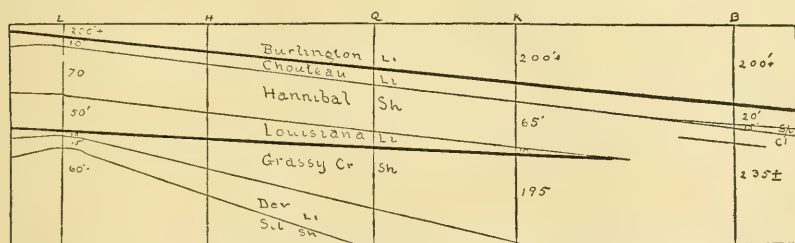 L H Q K B
200'+
10'
Burlington Li
200'+
200+
Chouteau Li
70
Hannibal Sh
65'
20'
Sh
50'
Louisiana Li
10
Cl
15'
Grassy Cr Sh
235±
60'-
195
Dev Li
Sil Sh